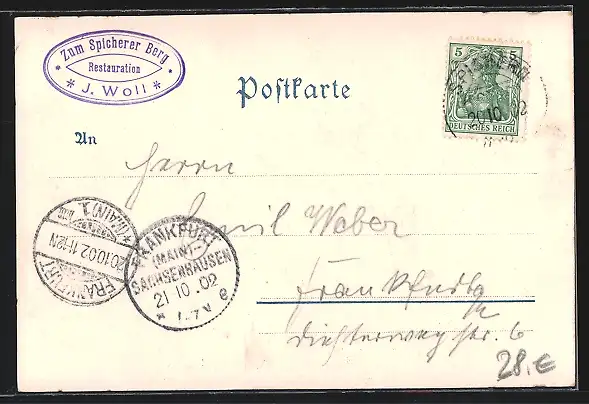 Zum Spicherer Berg
Restauration
* J. Woll *
Postkarte
5 5
DEUTSCHES REICH
20 10 02
An
Herrn
Emil Weber
Frankfurt a/M
Diesterwegstr. 6
FRANKFURT
(MAIN) 1.
20.10.02. 11-12N
FRANKFURT
(MAIN)
SACHSENHAUSEN
21 10. 02
* 1-7V e
28,€